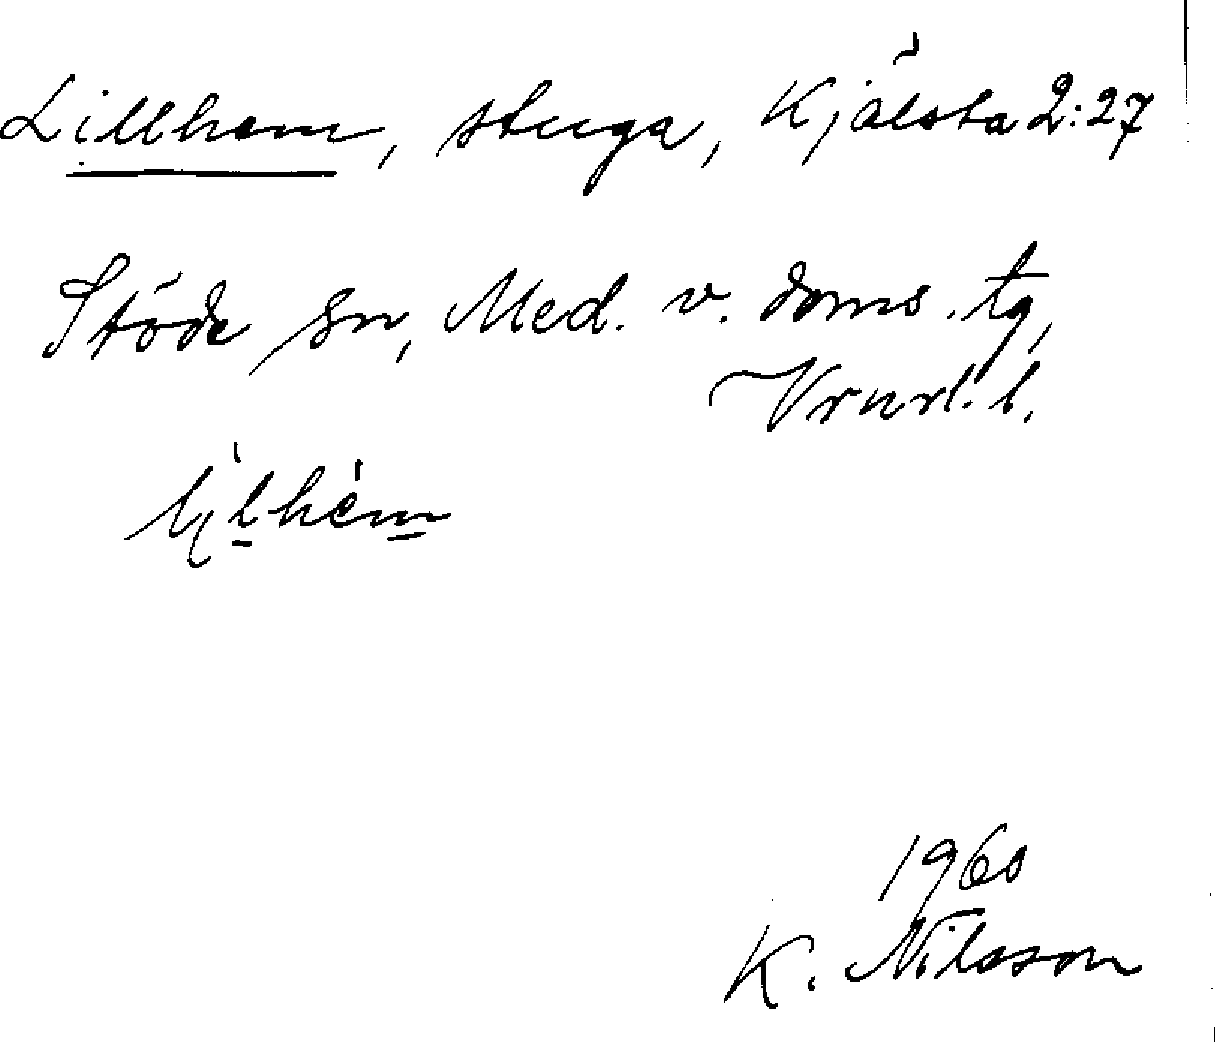 Lillhem, stuga, Kjälsta 2:27
Stöde sn, Med. v. doms. tg,
Vrnrl. l.
1960
K. Nilsson